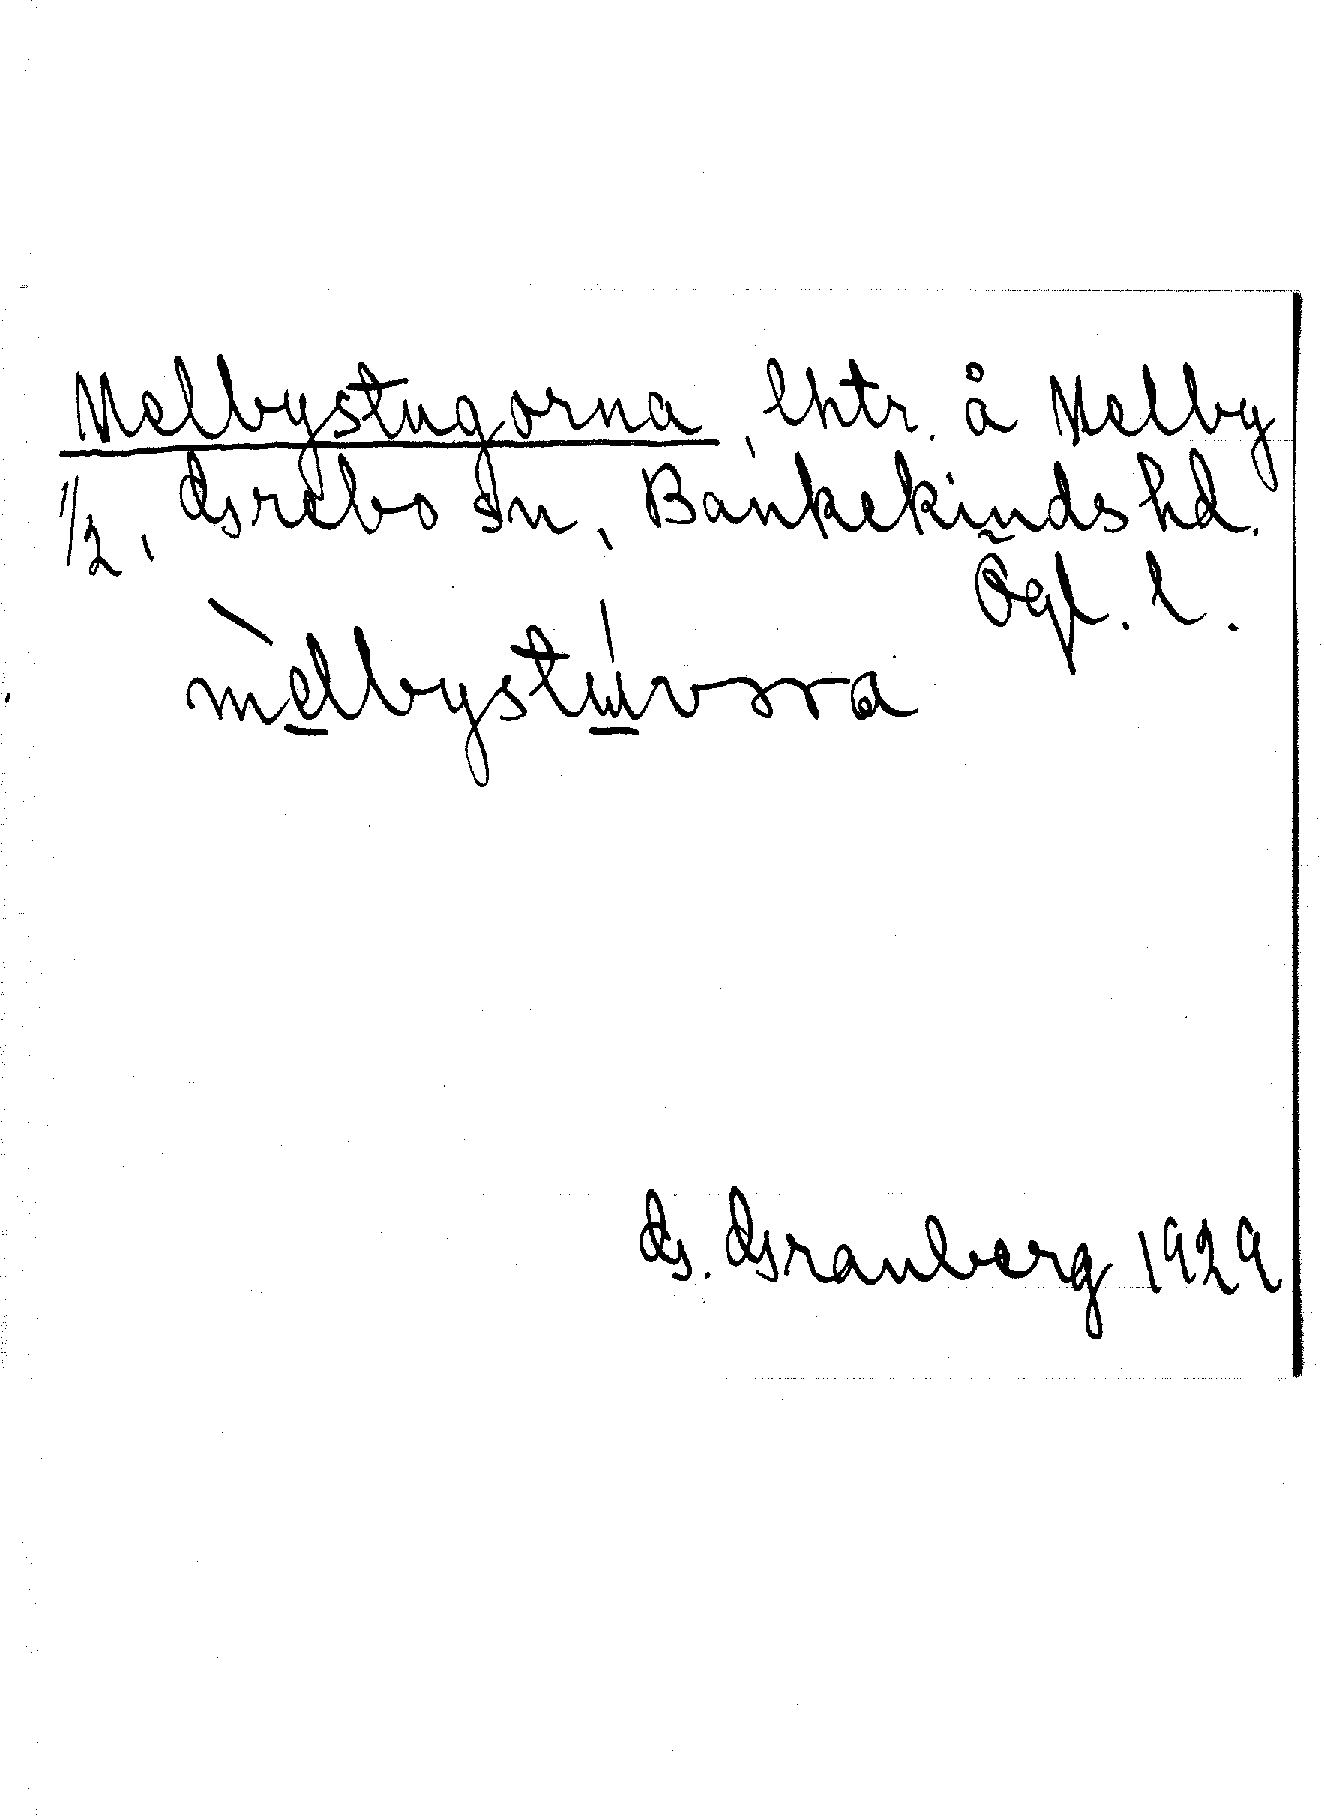 Melbystugorna, lhtr. å Melby
1/2, Grebo sn, Bankekinds hd.
Ögl. l.
mèlbystúvora
G. Granberg 1929